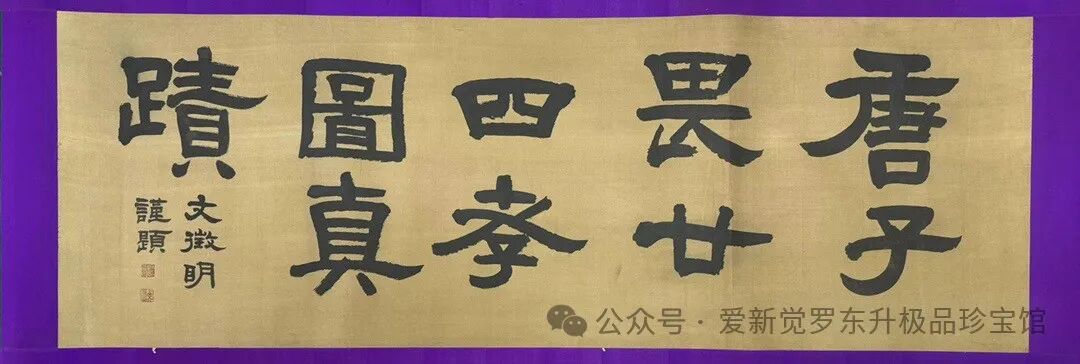 唐子
畏廿
四孝
圖真
蹟
文徵明
謹題
公众号·爱新觉罗东升极品珍宝馆